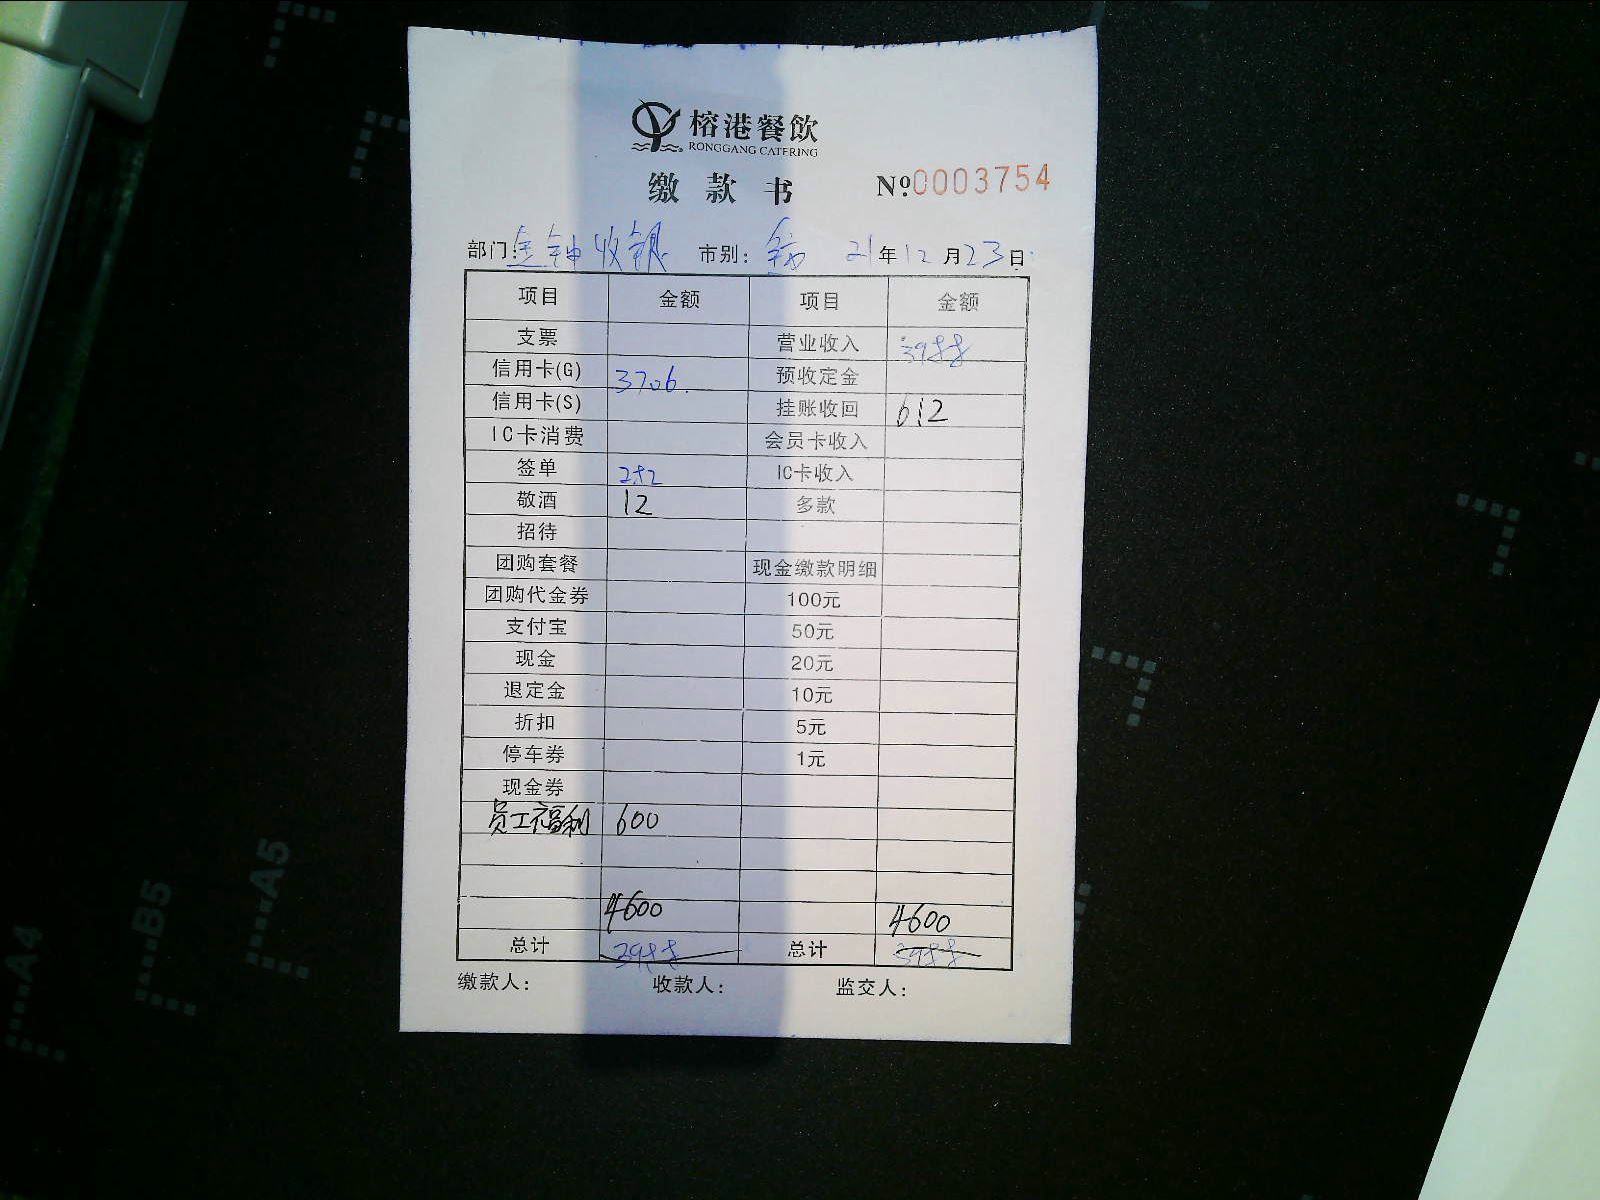 榕港餐飲
RONGGANG CATERING
缴款书 №0003754
部门:金钟收银 市别: 21年12月23日
项目 金额 项目 金额
支票 营业收入 3988
信用卡(G) 3706. 预收定金
信用卡(S) 挂账收回 612
IC卡消费 会员卡收入
签单 282 IC卡收入
敬酒 12 多款
招待
团购套餐 现金缴款明细
团购代金券 100元
支付宝 50元
现金 20元
退定金 10元
折扣 5元
停车券 1元
现金券
员工福利 600
4600 4600
总计 3988 总计 3988
缴款人: 收款人: 监交人:
A4
B5
A5